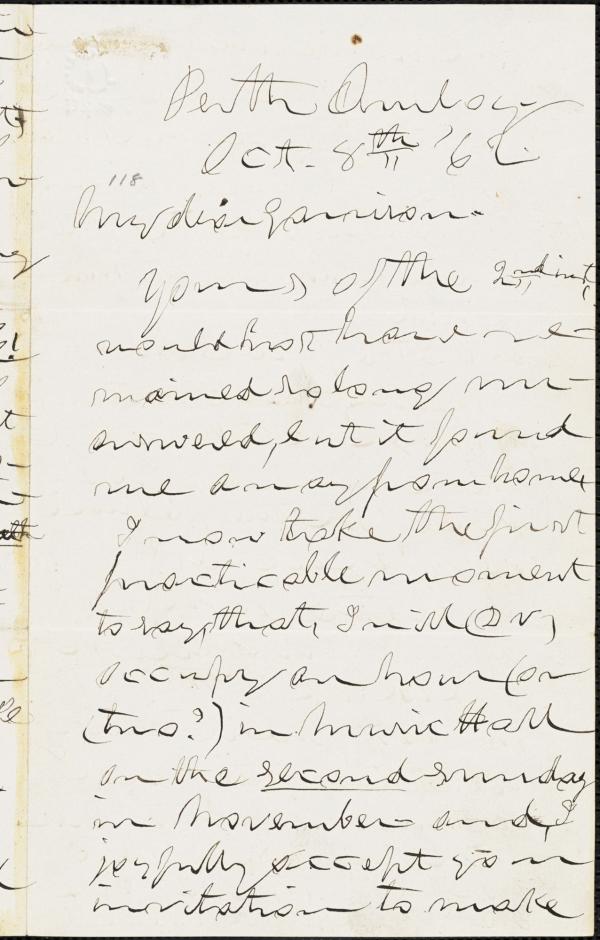 Perth Amboy
Oct. 8th '62
118
My dear Garrison.
Yours of the 2nd inst,
would not have re-
mained so long un-
answered, but it found
me away from home.
I now take the first
practicable moment
to say, that, I will (D V)
occupy an hour (or
(two?) in Music Hall
on the second Sunday
in November and, I
joyfully accept your
invitation to make